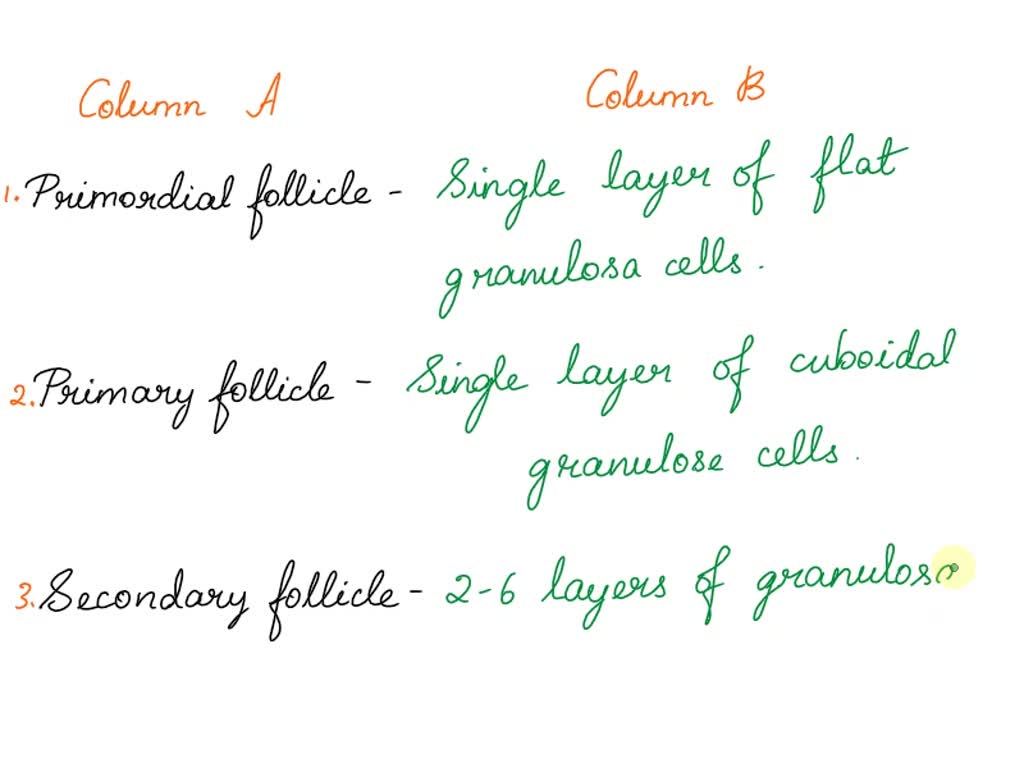 Column A Column B
1. Primordial follicle - Single layer of flat
granulosa cells.
2. Primary follicle - Single layer of cuboidal
granulose cells.
3. Secondary follicle - 2-6 layers of granulosa